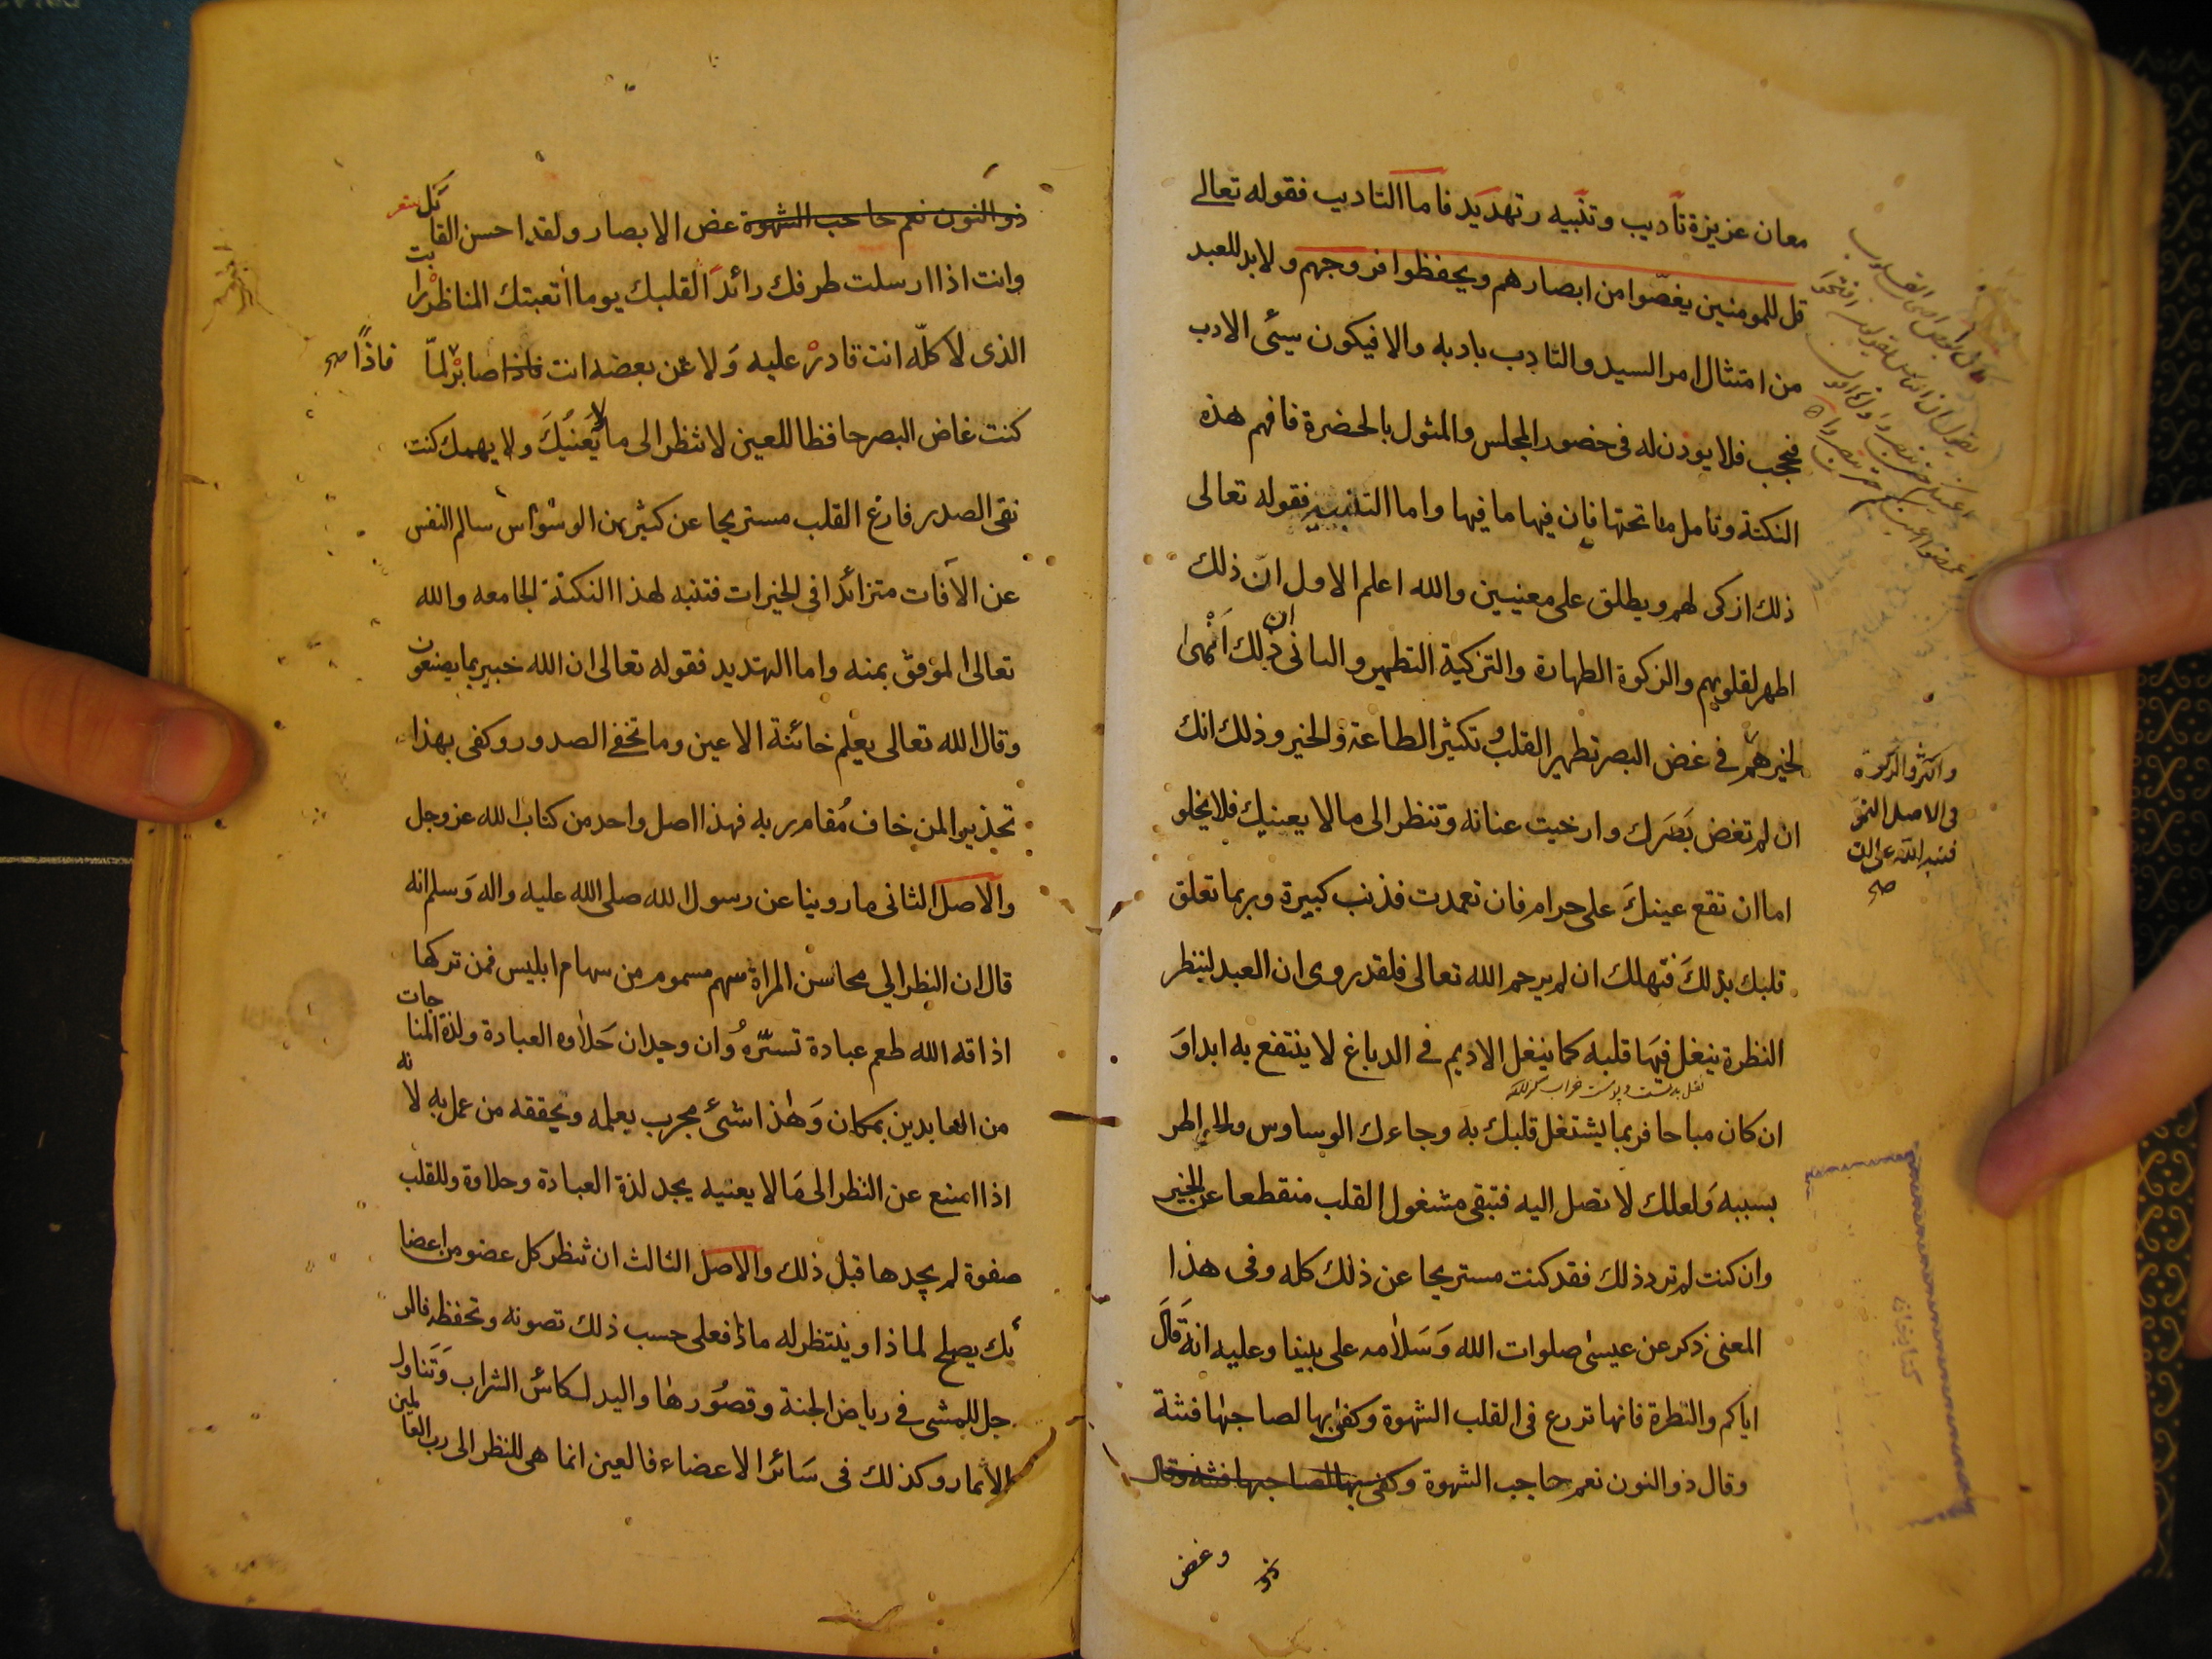 معان عزيزة تاديب وتنبيه وتهديد فاما التاديب فقوله تعالى
قل للمومنين يغضّوا من ابصارهم ويحفظوا فروجهم ولابد للعبد
من امتثال امر السيد والتادب بادبه والا فيكون سيئى الادب
فيحجب فلا يوذن له فى حضور المجلس والمثول بالحضرة فافهم هذه
النكتة وتامل ما تحتها فان فيها ما فيها واما التنبيه فقوله تعالى
ذلك ازكى لهم ويطلق على معنيين والله اعلم الاول انّ ذلك
اطهر لقلوبهم والزكوة الطهارة والتزكية التطهير والثانى ان ذلك انمى
لخيرهم فى غض البصر تطهير القلب و تكثير الطاعة والخير وذلك انك
ان لم تغض بَصَرك وارخيت عنانه وتنظر الى ما لا يعنيك فلا يخلو
اما ان تقع عينكَ على حرام فان تعمدت فذنب كبيرة وربما تعلق
قلبك بذلكَ فتهلك ان لم يرحم الله تعالى فلقد روى ان العبد لينظر
النظرة ينغل فيهَا قلبه كما ينغل الاديم فى الدباغ لا ينتفع به ابدا وَ
ان كان مباحا فربما يشتغل قلبك به وجاءك الوساوس والخواطر
بسببه وَلعلك لا تصل اليه فتبقى مشغول القلب منقطعا عن الخير
وان كنت لم تر ذلك فقد كنت مستريحا عن ذلك كله وفى هذا
المعنى ذكر عن عيسى صلوات الله وَسَلامه على نبينا وعليه انهَ قالَ
اياكم والنظرة فانها تزرع فى القلب الشهوة وكفى بها لصاحبها فتنة
وقال ذو النون نعم حاجب الشهوة وكفى بها لصاحبها فتنة وقال
واكثر والزكوة
فى الاصل النموّ
فنبه الله على ان
صح
وغض
ذو
ذو النون نعم حاجب الشهوة غض الابصار ولقد احسن القائل شعر
وانت اذا ارسلت طرفك رائدَا لقلبك يوما اتعبتك المناظر رايت
الذى لا كلّه انت قادرْ عليه وَلا عن بعضه انت فاذا صابرْ لمّا
فاذًا صح
كنت غاض البصر حافظا للعين لا تنظر الى ما لا يَعنيكَ ولا يهمك كنت
نقى الصدر فارغ القلب مستريحا عن كثير من الوسْوَاس سالم النفس
عن الآفات متزائدا فى الخيرات فتنبه لهذا النكتة الجامعه والله
تعالى الموفق بمنه واما التهديد فقوله تعالى ان الله خبير بما يصنعون
وقال الله تعالى يعلم خائنة الاعين وما تخفى الصدور وكفى بهذا
تحذيرا لمن خاف مُقام ربه فهذا اصل واحد من كتاب الله عز وجل
والاصل الثانى ما روينا عن رسول الله صلى الله عليه واله وَسلم انه
قال ان النظر الي محاسن المراة سهم مسموم من سهام ابليس فمن تركها
اذاقه الله طعم عبادة تسرّه وُان وجدان حَلاوه العبادة ولذة المناجات
من العابدين بمكان وَهذا شئ مجرب يعلمه ويحققه من عمل به لانه
اذا امنع عن النظر الى مَا لا يعنيه يجد لذة العبادة وحلاوة وللقلب
صفوة لم يجدها قبل ذلك والاصل الثالث ان تنظر كل عضو من اعضا
ئك يصلح لماذا وينتظر له ماذا فعلى حسب ذلك تصونه وتحفظه فالر
جل للمشى فى رياض الجنة وقصُورها واليد لكأس الشراب وَتَناول
الاثمار وكذلك فى سَائر الاعضاء فالعين انما هى للنظر الى رب العالمين